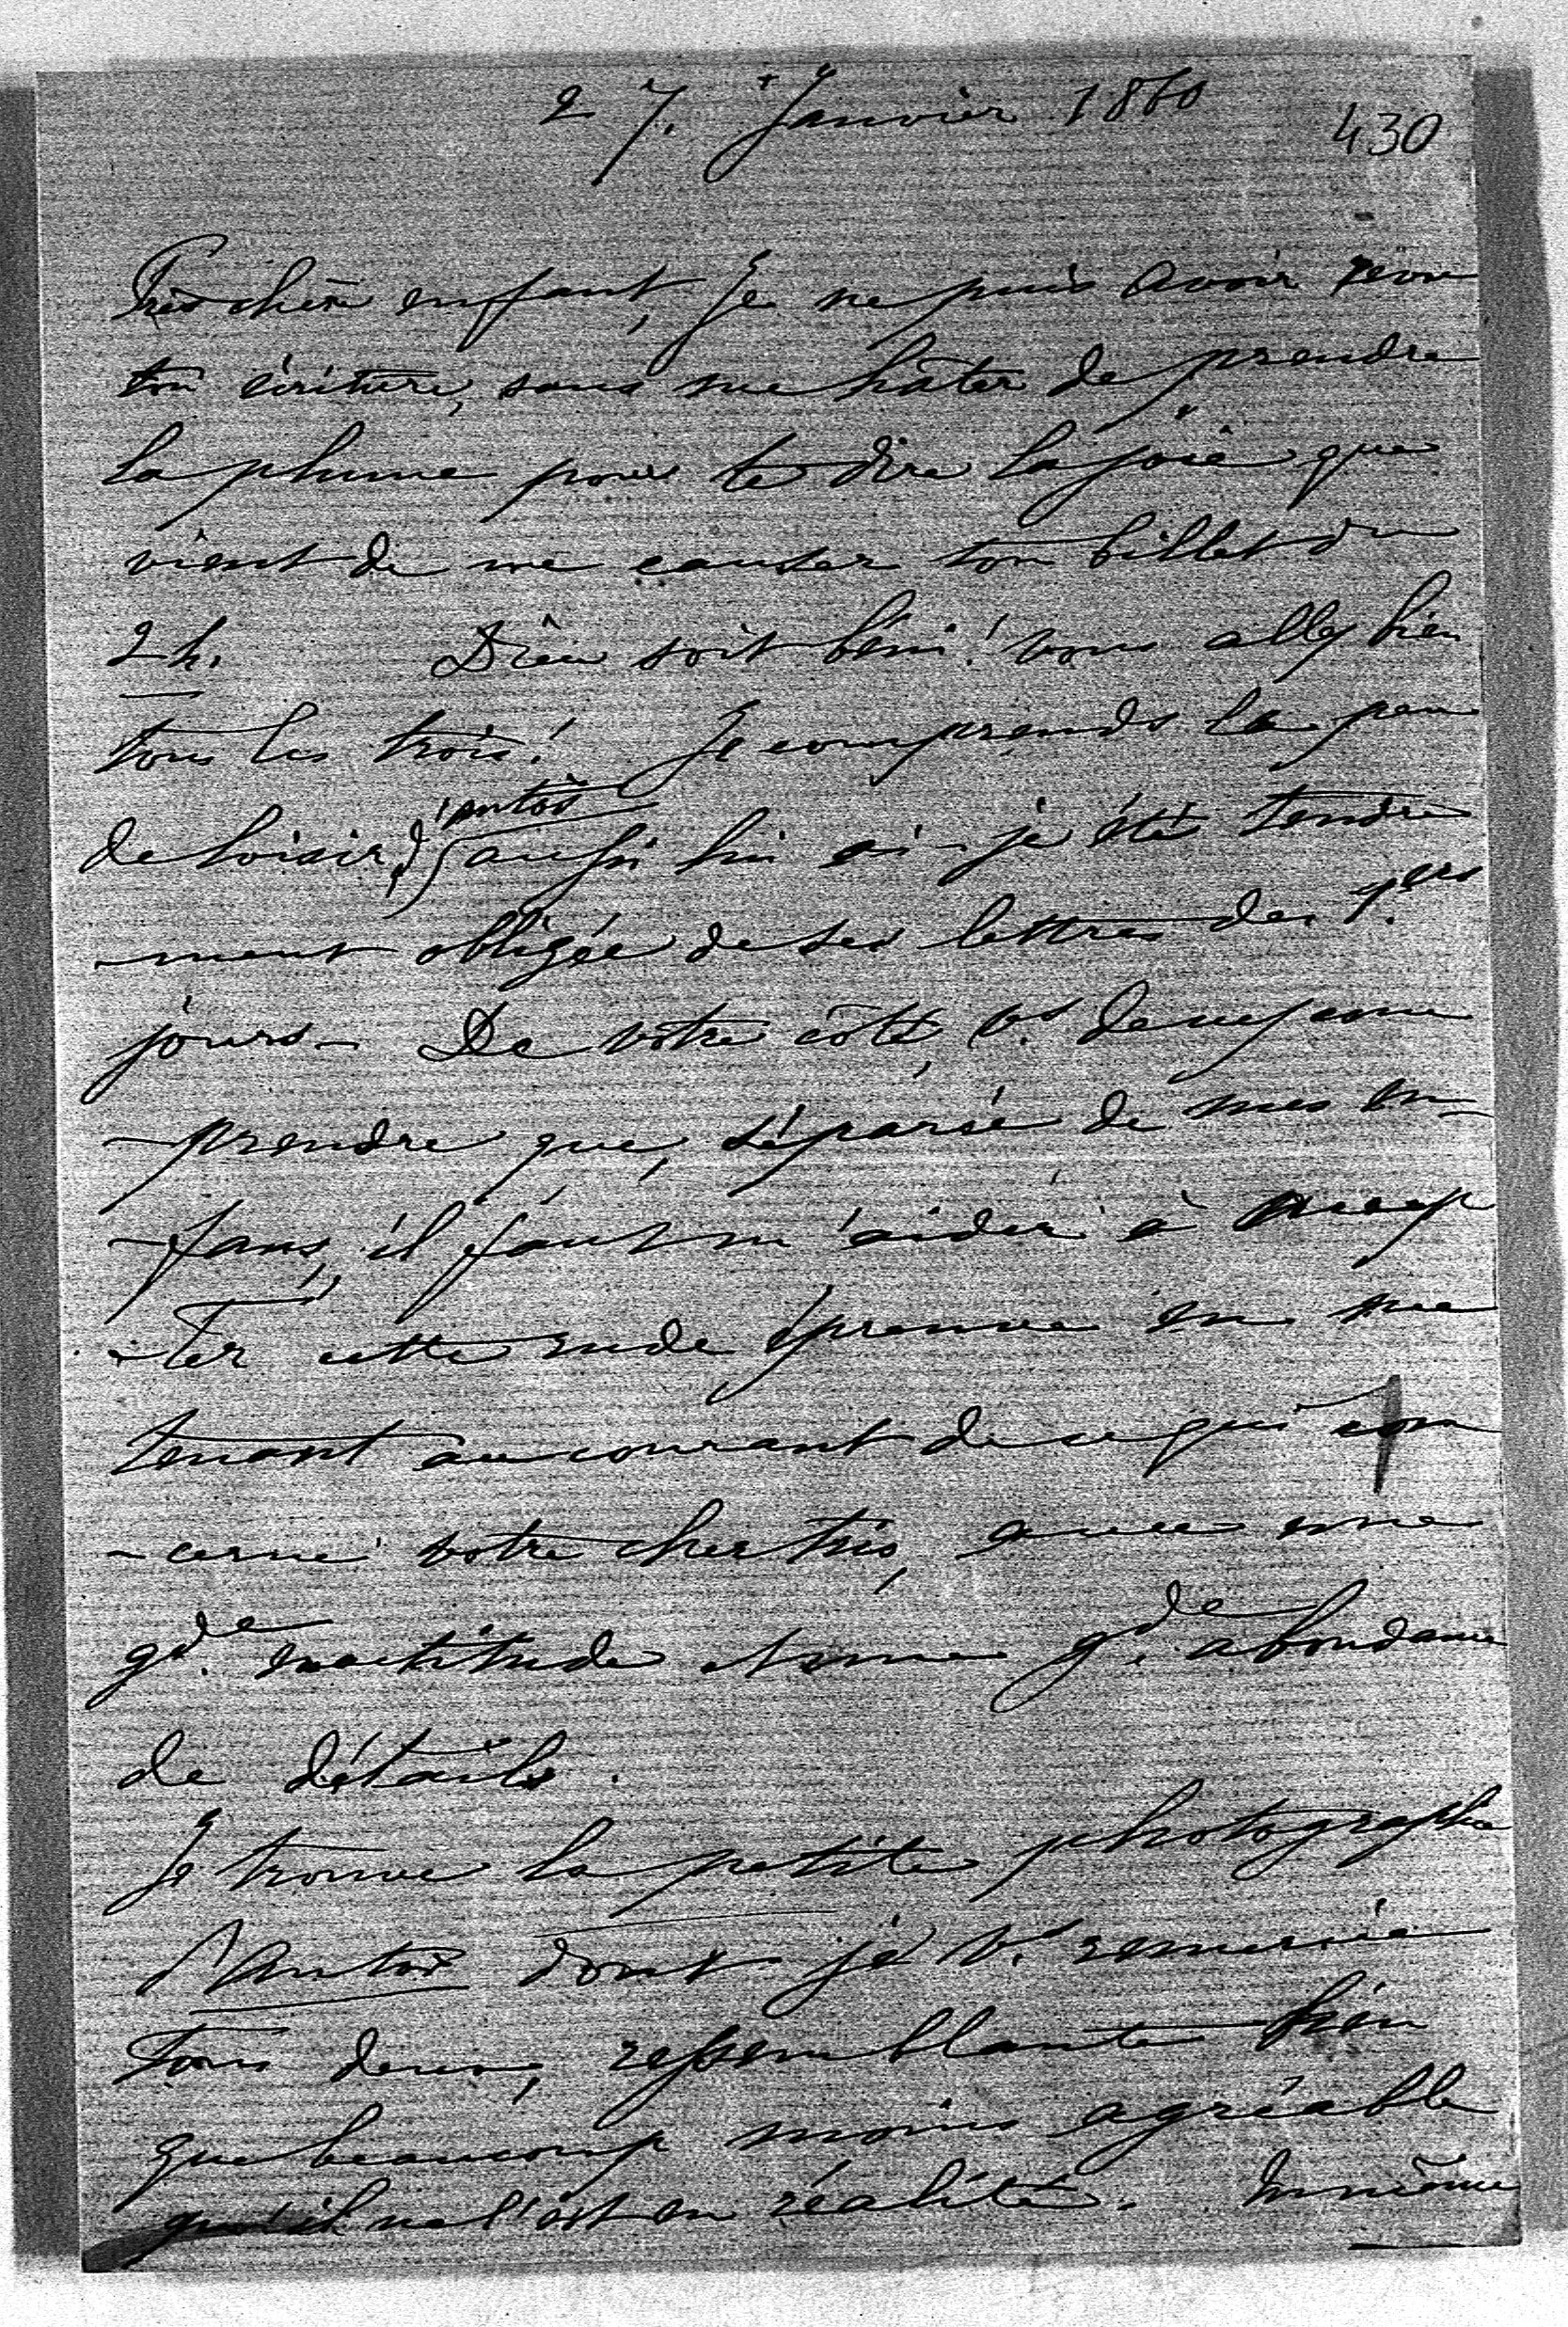 27. Janvier 1860
430
Très chère enfant, Je ne puis avoir revu
ton écriture, sans me hâter de prendre
la plume pour te dire la joie que
vient de me causer ton billet du
24. Dieu soit béni! vous allez bien
tous les trois! Je comprends le peu
de loisir d'Antos aussi lui ai-je été tendre
-ment obligée de ses lettres des 1.ers
jours - De votre côté, v.s devez com
-prendre que, séparée de mes en-
-fans, il faut m'aider à accep
-ter cette rude épreuve en me
tenant au courant de ce qui con
-cerne votre cher trio, avec une
gde. exactitude et une gde. abondance
de détails.
Je trouve la petite photographie
d'Antos dont je v.s remercie
tous deux, ressemblante bien
que beaucoup moins agréable
qu'il ne l'est en réalité.